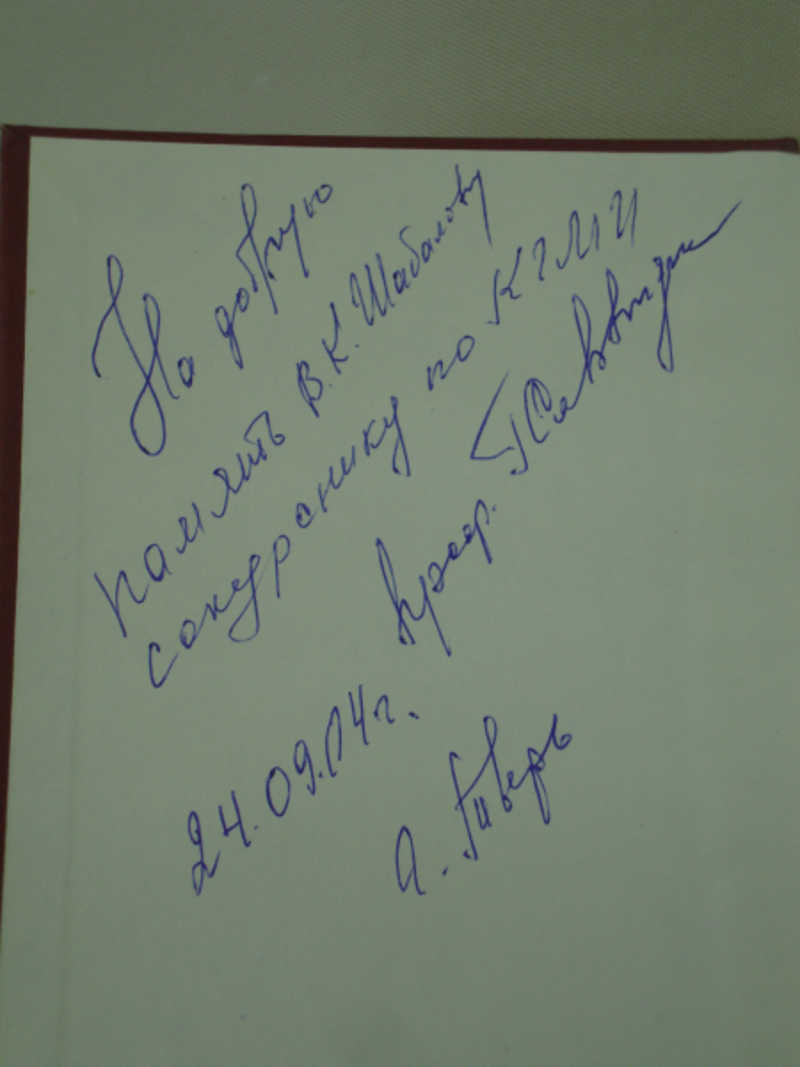 На добрую
память В.К. Шабалову
сокурснику по КГМИ
проф.
24.09.04г.
г. Тверь